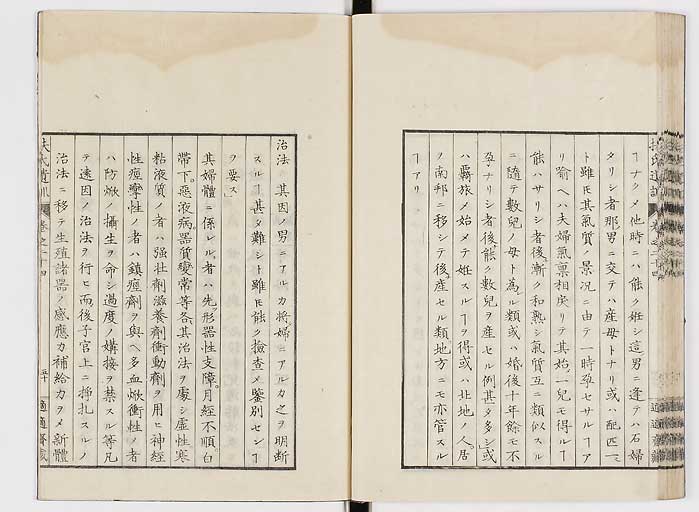 ヿナクメ他時ニハ能ク姙シ這男ニ逢テハ石婦
タリシ者那男ニ交テハ産母トナリ或ハ配匹
ト雖モ其氣質ノ景况ニ由テ一時孕セサルヿア
リ喩ヘハ夫婦氣禀相戻リテ其始一兒モ得ルヿ
能ハサリシ者後漸ク和熟シ氣質互ニ類似スル
ニ隨テ數兒ノ母ト為ル類或ハ婚後十年餘モ不
孕ナリシ者後能ク數兒ヲ産セル例甚タ多シ或
ハ羈旅メ始メテ姙スルヿヲ得或ハ北地ノ人居
ヲ南邦ニ移シテ後産セル類地方ニモ亦管スル
ヿアリ
扶氏遺訓 卷之二十四
適適齋藏
治法 其因ノ男ニアルカ將婦ニアルカ之ヲ明断
スルヿ甚タ難シト雖モ能ク檢査メ鑒別センヿ
ヲ要ス
其婦體ニ係レル者ハ先形器性支障月經不順白
帶下惡液病器質變常等各其治法ヲ處シ虛性寒
粘液質ノ者ハ強壮劑滋養劑衝動劑ヲ用ヒ神經
性痙攣性ノ者ハ鎮痙劑ヲ與ヘ多血焮衝性ノ者
ハ防焮ノ攝生ヲ命シ過度ノ媾接ヲ禁スル等凡
テ遠因ノ治法ヲ行ヒ而後子宮上ニ掙扎スルノ
治法ニ移テ生殖諸器ノ感應力補給力ヲメ新體
扶氏遺訓 卷之二十四
適適齋藏